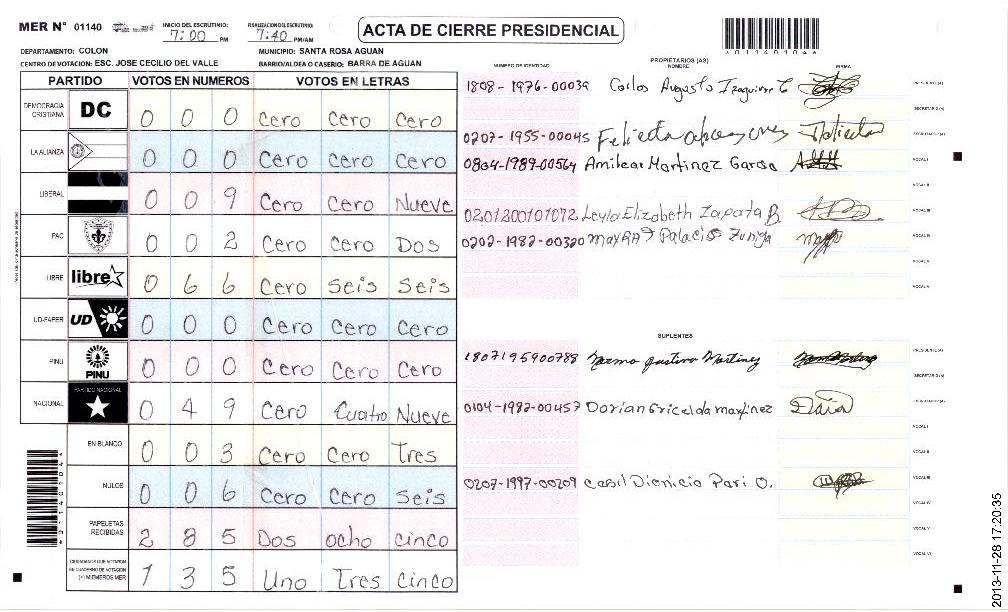 MER N° 01140
INICIO DEL ESCRUTINIO: 7:00 PM
FINALIZACION DEL ESCRUTINIO: 7:40 PM/AM
ACTA DE CIERRE PRESIDENCIAL
01140104
DEPARTAMENTO: COLON
MUNICIPIO: SANTA ROSA AGUAN
CENTRO DE VOTACION: ESC. JOSE CECILIO DEL VALLE
BARRIO/ALDEA O CASERIO: BARRA DE AGUAN
PARTIDO VOTOS EN NUMEROS VOTOS EN LETRAS
DEMOCRACIA CRISTIANA DC 0 0 0 Cero Cero Cero
LA ALIANZA 0 0 0 Cero Cero Cero
LIBERAL 0 0 9 Cero Cero Nueve
PAC 0 0 2 Cero Cero Dos
LIBRE libre 0 6 6 Cero Seis Seis
UD-FAPER UD 0 0 0 Cero Cero Cero
PINU PINU 0 0 0 Cero Cero Cero
NACIONAL PARTIDO NACIONAL 0 4 9 Cero Cuatro Nueve
EN BLANCO 0 0 3 Cero Cero Tres
NULOS 0 0 6 Cero Cero Seis
PAPELETAS RECIBIDAS 2 8 5 Dos ocho cinco
CIUDADANOS QUE VOTARON EN CUADERNO DE VOTACION (+) MIEMBROS MER 1 3 5 Uno Tres Cinco
NUMERO DE IDENTIDAD
PROPIETARIOS (AS)
NOMBRE
FIRMA
1808-1976-00039 Carlos Augusto Izaguirre C PRESIDENTE (A)
SECRETARIO (A)
0207-1955-00045 SECRETARIO (A)
0804-1989-00564 Amilcar Martinez Garcia VOCAL I
VOCAL II
0201200101072 Leyla Elizabeth Zapata B. VOCAL III
0202-1982-00320 Palacios Zuniga VOCAL IV
VOCAL V
SUPLENTES
1807195900788 Norma gustavo Martinez PRESIDENTE (A)
SECRETARIO (A)
0104-1982-00457 Dorian Gricelda martinez
VOCAL I
VOCAL II
0207-1997-00209 Casil Dionicio Pari O. VOCAL III
VOCAL IV
VOCAL V
VOCAL VI
2013-11-28 17:20:35